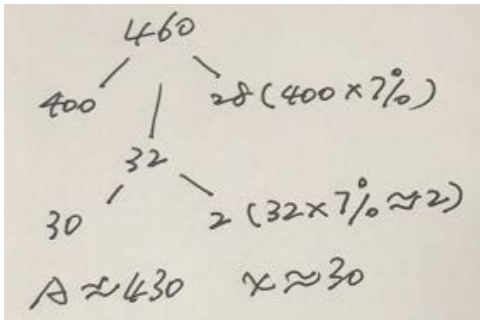 460
400 28(400×7%)
32
30 2(32×7%≈2)
A≈430 x≈30